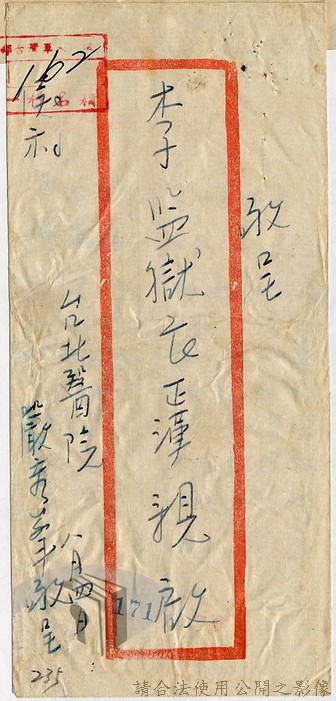 敬呈
李監獄長正漢親啟
171
台北醫院
嚴秀峯敬呈
八月四日
162
235
請合法使用公開之影像